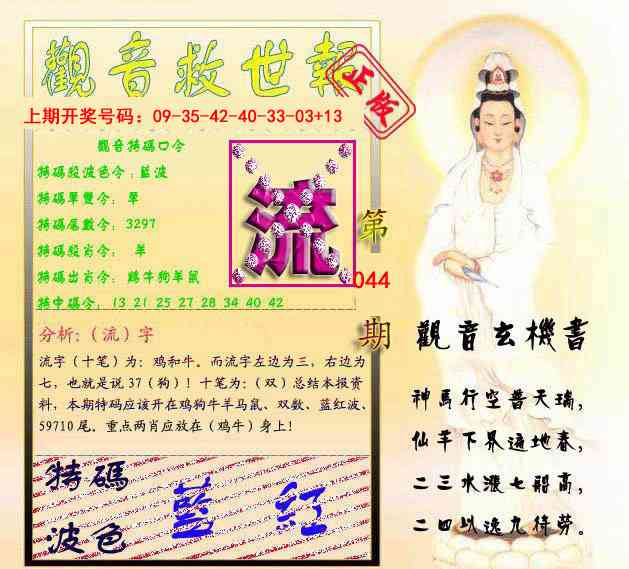 觀音救世報
正版
上期开奖号码：09-35-42-40-33-03+13
觀音特碼口令
特碼段波色令：藍波
特碼單雙令：單
特碼尾數令：3297
特碼段肖令：羊
特碼出肖令：鷄牛狗羊鼠
特中碼令：13 21 25 27 28 34 40 42
流
第
044
期
分析:（流）字
流字（十笔）为：鸡和牛。而流字左边为三，右边为
七，也就是说37（狗）！十笔为：（双）总结本报资
料，本期特码应该开在鸡狗牛羊马鼠、双数、蓝红波、
59710尾。重点两肖应放在（鸡牛）身上！
特碼
波色
藍 紅
觀音玄機書
神馬行空普天瑞，
仙羊下界遍地春，
二三水漲七韶高，
二四以逸九待勞。